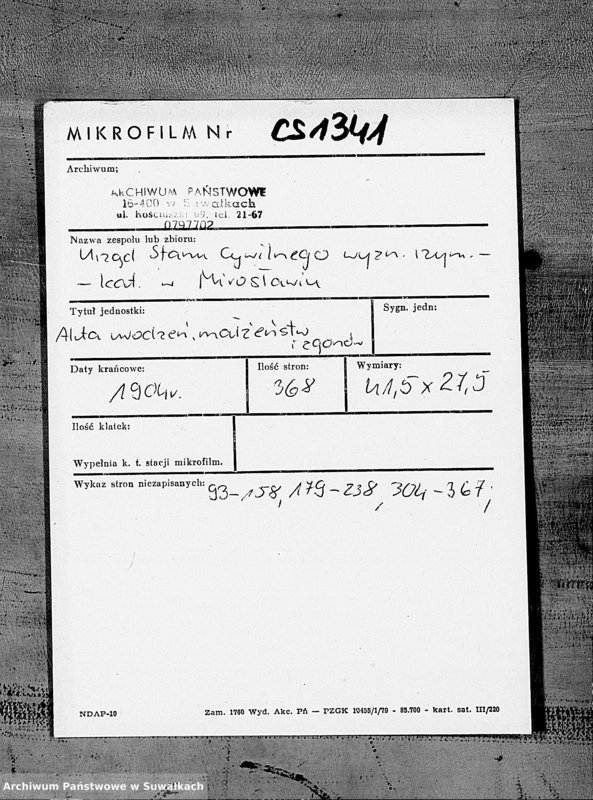 MIKROFILM Nr CS1341
Archiwum;
ARCHIWUM PAŃSTWOWE
16-400 w Suwałkach
ul. Kościuszki 69, tel. 21-67
0797702
Nazwa zespołu lub zbioru:
Urząd Stanu Cywilnego wyzn. rzym.-
- kat. w Mirosławiu
Tytuł jednostki:
Sygn. jedn:
Akta urodzeń, małżeństw
i zgonów
Daty krańcowe:
Ilość stron:
Wymiary:
1904r.
368
41,5 x 27,5
Ilość klatek:
Wypełnia k. t. stacji mikrofilm.
Wykaz stron niezapisanych: 93-158, 179-238, 304-367;
NDAP-10
Zam. 1760 Wyd. Akc. Pń — PZGK 10455/1/79 - 85.700 - kart. sat. III/220
Archiwum Państwowe w Suwałkach